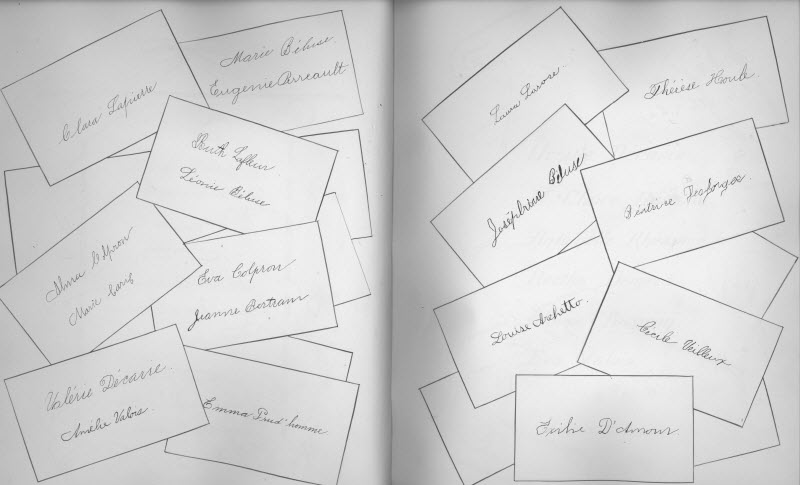 Clara Lapierre
Marie Béluse.
Eugenie Perreault
Ruth Lafleur
Léonie Béluse
Alma Colpron
Marie
Eva Colpron
Jeanne Bertram
Valérie Décarre.
Amélie Valois.
Emma Prud'homme
Laura Larose.
Thérèse Houle
Joséphine Béluse
Béatrice Desforges.
Louise Archetto.
Cecile Veilleux
D'Amour